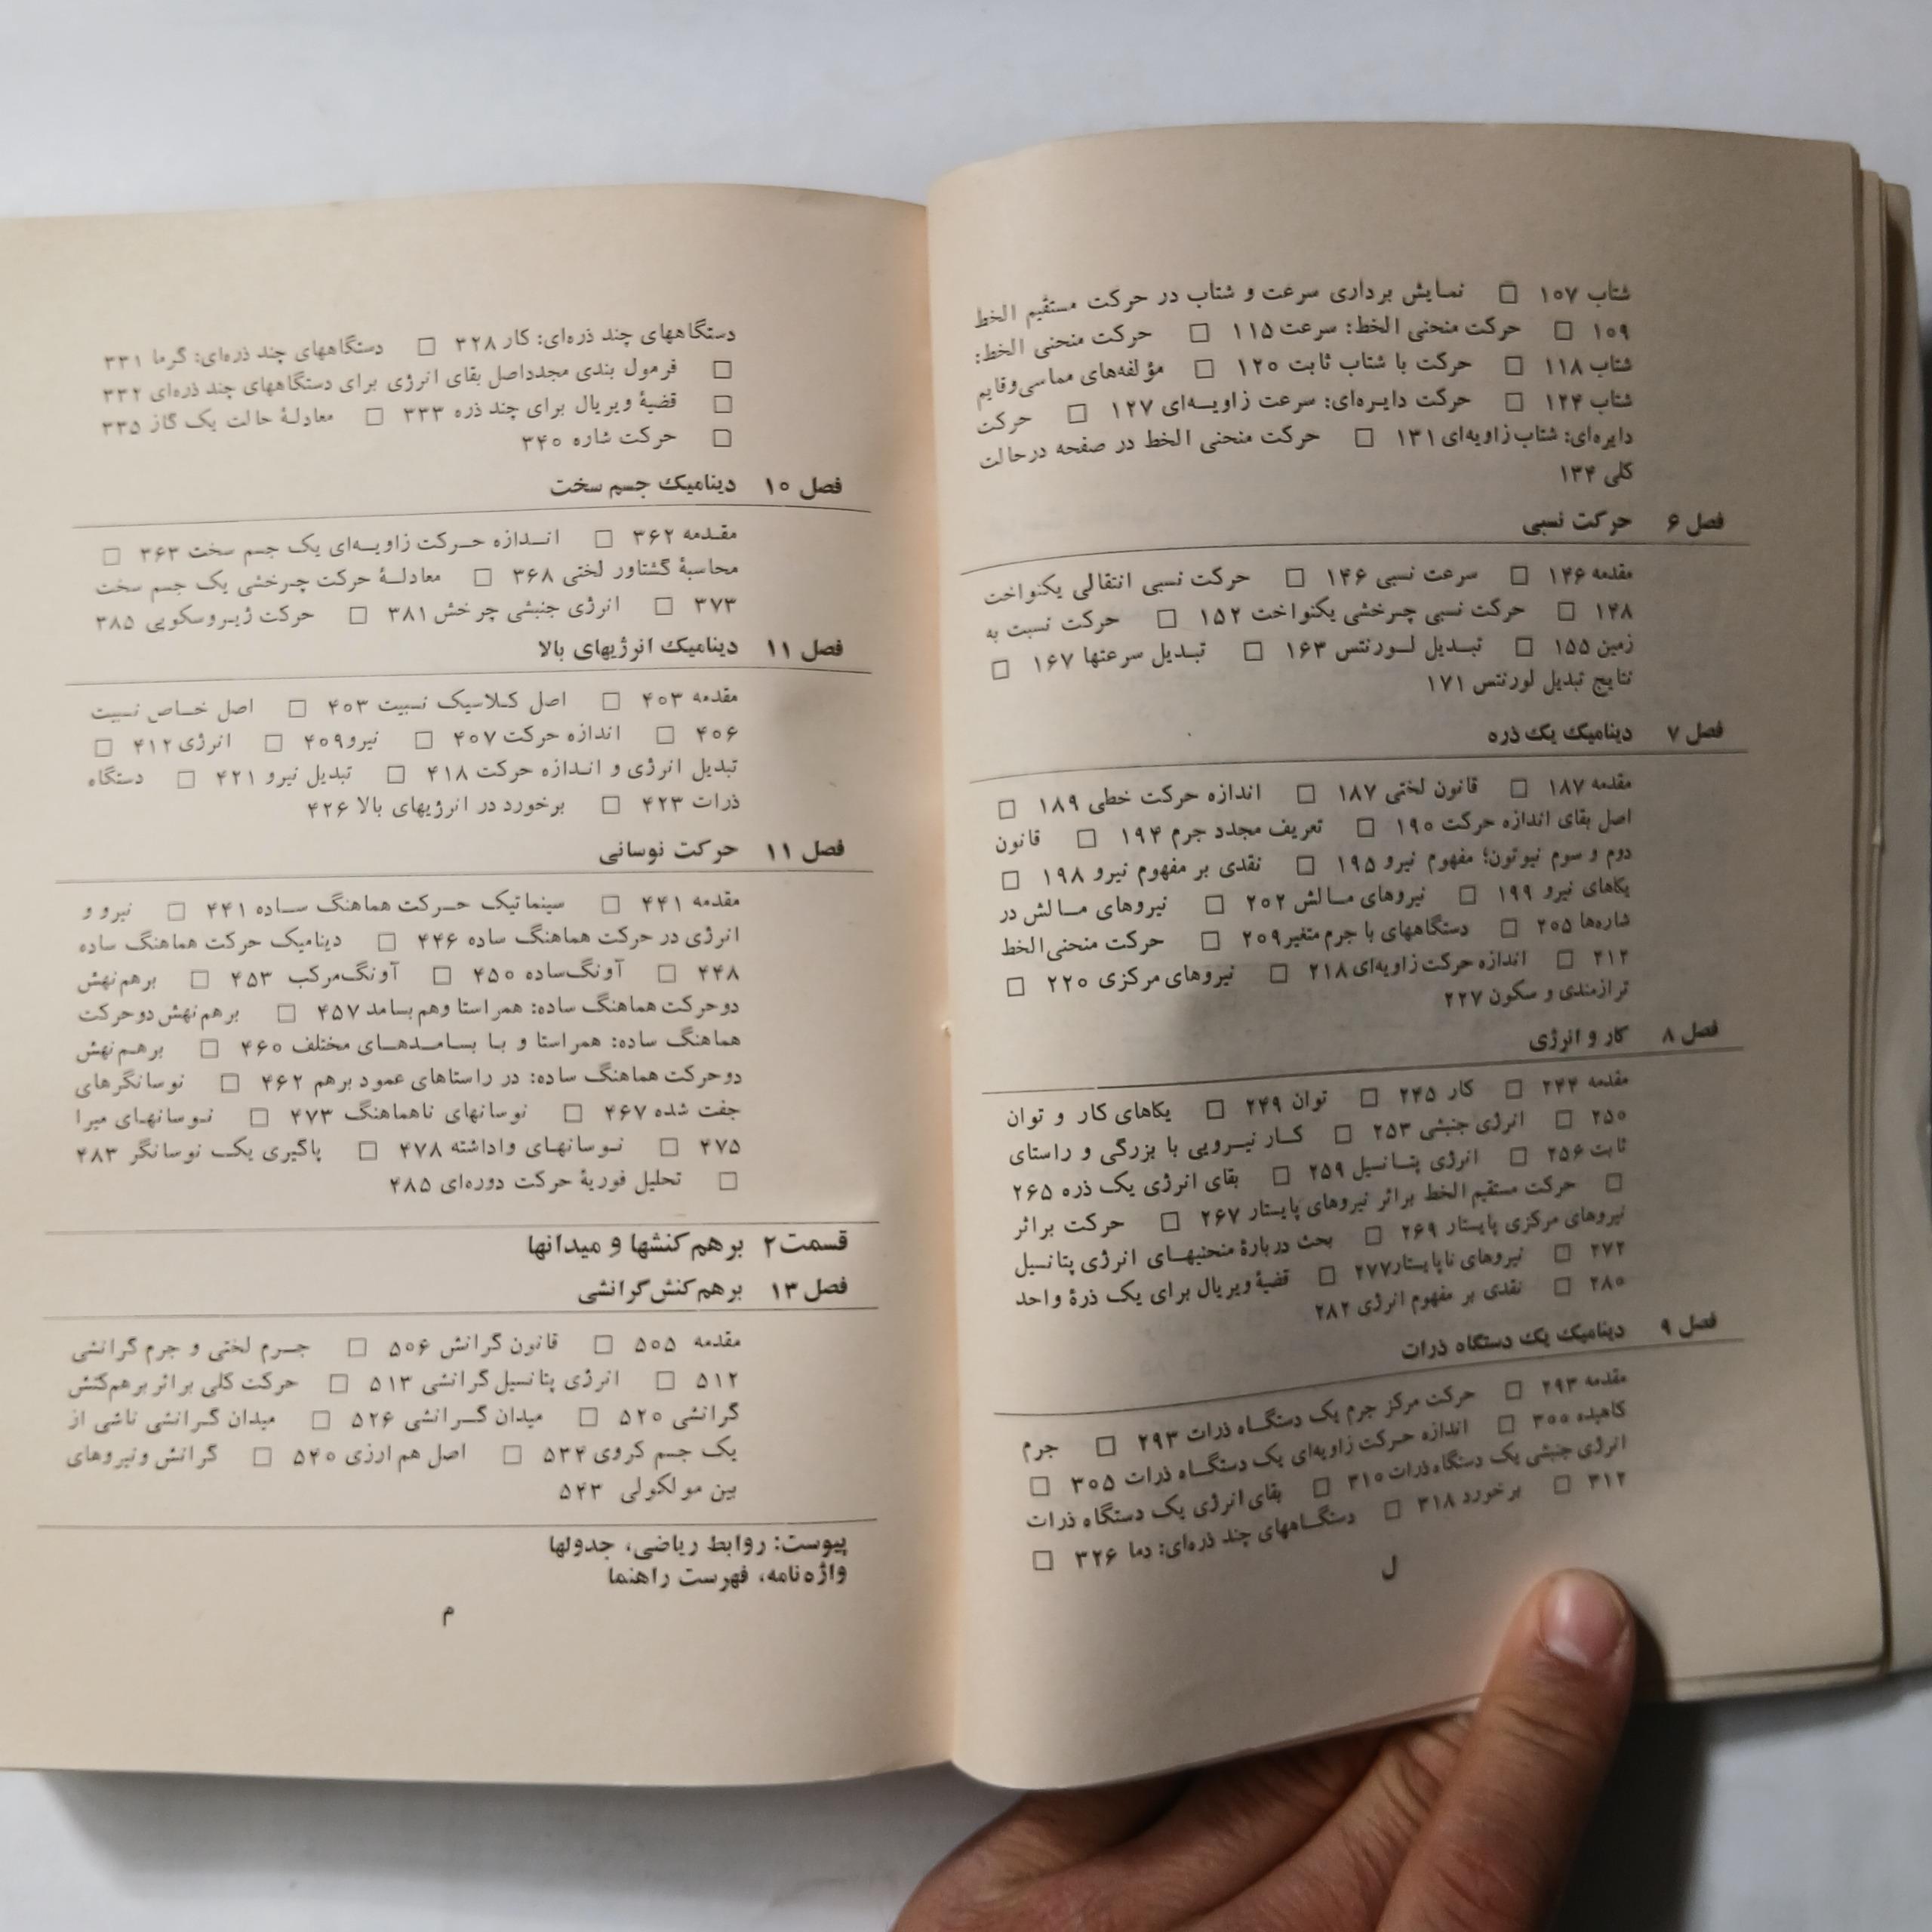 شتاب ۱۰۷ □ نمایش برداری سرعت و شتاب در حرکت مستقیم الخط
۱۰۹ □ حرکت منحنی الخط: سرعت ۱۱۵ □ حرکت منحنی الخط:
شتاب ۱۱۸ □ حرکت با شتاب ثابت ۱۲۰ □ مؤلفه‌های مماسی‌وقایم
شتاب ۱۲۴ □ حرکت دایره‌ای: سرعت زاویه‌ای ۱۲۷ □ حرکت
دایره‌ای: شتاب زاویه‌ای ۱۳۱ □ حرکت منحنی الخط در صفحه درحالت
کلی ۱۳۴
فصل ۶ حرکت نسبی
مقدمه ۱۴۶ □ سرعت نسبی ۱۴۶ □ حرکت نسبی انتقالی یکنواخت
۱۴۸ □ حرکت نسبی چرخشی یکنواخت ۱۵۲ □ حرکت نسبت به
زمین ۱۵۵ □ تبدیل لورنتس ۱۶۳ □ تبدیل سرعتها ۱۶۷ □
نتایج تبدیل لورنتس ۱۷۱
فصل ۷ دینامیک یک ذره
مقدمه ۱۸۷ □ قانون لختی ۱۸۷ □ اندازه حرکت خطی ۱۸۹ □
اصل بقای اندازه حرکت ۱۹۰ □ تعریف مجدد جرم ۱۹۴ □ قانون
دوم و سوم نیوتون؛ مفهوم نیرو ۱۹۵ □ نقدی بر مفهوم نیرو ۱۹۸ □
یکاهای نیرو ۱۹۹ □ نیروهای مالش ۲۰۲ □ نیروهای مالش در
شاره‌ها ۲۰۵ □ دستگاههای با جرم متغیر۲۰۹ □ حرکت منحنی‌الخط
۲۱۲ □ اندازه حرکت زاویه‌ای۲۱۸ □ نیروهای مرکزی ۲۲۰ □
ترازمندی و سکون ۲۲۷
فصل ۸ کار و انرژی
مقدمه ۲۴۴ □ کار ۲۴۵ □ توان ۲۴۹ □ یکاهای کار و توان
۲۵۰ □ انرژی جنبشی ۲۵۳ □ کار نیرویی با بزرگی و راستای
ثابت ۲۵۶ □ انرژی پتانسیل ۲۵۹ □ بقای انرژی یک ذره ۲۶۵
□ حرکت مستقیم الخط براثر نیروهای پایستار ۲۶۷ □ حرکت براثر
نیروهای مرکزی پایستار ۲۶۹ □ بحث دربارهٔ منحنیهای انرژی پتانسیل
۲۷۲ □ نیروهای ناپایستار۲۷۷ □ قضیهٔ ویریال برای یک ذرهٔ واحد
۲۸۰ □ نقدی بر مفهوم انرژی ۲۸۲
فصل ۹ دینامیک یک دستگاه ذرات
مقدمه ۲۹۳ □ حرکت مرکز جرم یک دستگاه ذرات ۲۹۳ □ جرم
کاهیده ۳۰۰ □ اندازه حرکت زاویه‌ای یک دستگاه ذرات ۳۰۵ □
انرژی جنبشی یک دستگاه ذرات ۳۱۰ □ بقای انرژی یک دستگاه ذرات
۳۱۲ □ برخورد ۳۱۸ □ دستگاههای چند ذره‌ای: دما ۳۲۶ □
ل
دستگاههای چند ذره‌ای: کار ۳۲۸ □ دستگاههای چند ذره‌ای: گرما ۳۳۱
□ فرمول بندی مجدداصل بقای انرژی برای دستگاههای چند ذره‌ای ۳۳۲
□ قضیهٔ ویریال برای چند ذره ۳۳۳ □ معادلهٔ حالت یک گاز ۳۳۵
□ حرکت شاره ۳۴۰
فصل ۱۰ دینامیک جسم سخت
مقدمه ۳۶۲ □ اندازه حرکت زاویه‌ای یک جسم سخت ۳۶۳ □
محاسبهٔ گشتاور لختی ۳۶۸ □ معادلهٔ حرکت چرخشی یک جسم سخت
۳۷۳ □ انرژی جنبشی چرخش ۳۸۱ □ حرکت ژیروسکوپی ۳۸۵
فصل ۱۱ دینامیک انرژیهای بالا
مقدمه ۴۰۳ □ اصل کلاسیک نسبیت ۴۰۳ □ اصل خاص نسبیت
۴۰۶ □ اندازه حرکت ۴۰۷ □ نیرو۴۰۹ □ انرژی ۴۱۲ □
تبدیل انرژی و اندازه حرکت ۴۱۸ □ تبدیل نیرو ۴۲۱ □ دستگاه
ذرات ۴۲۳ □ برخورد در انرژیهای بالا ۴۲۶
فصل ۱۱ حرکت نوسانی
مقدمه ۴۴۱ □ سینماتیک حرکت هماهنگ ساده ۴۴۱ □ نیرو و
انرژی در حرکت هماهنگ ساده ۴۴۶ □ دینامیک حرکت هماهنگ ساده
۴۴۸ □ آونگ‌ساده ۴۵۰ □ آونگ‌مرکب ۴۵۳ □ برهم‌نهش
دوحرکت هماهنگ ساده: همراستا وهم‌بسامد ۴۵۷ □ برهم‌نهش دوحرکت
هماهنگ ساده: همراستا و با بسامدهای مختلف ۴۶۰ □ برهم‌نهش
دوحرکت هماهنگ ساده: در راستاهای عمود برهم ۴۶۲ □ نوسانگرهای
جفت شده ۴۶۷ □ نوسانهای ناهماهنگ ۴۷۳ □ نوسانهای میرا
۴۷۵ □ نوسانهای واداشته ۴۷۸ □ پاگیری یک نوسانگر ۴۸۳
□ تحلیل فوریهٔ حرکت دوره‌ای ۴۸۵
قسمت۲ برهم‌کنشها و میدانها
فصل ۱۳ برهم‌کنش گرانشی
مقدمه ۵۰۵ □ قانون گرانش ۵۰۶ □ جرم لختی و جرم گرانشی
۵۱۲ □ انرژی پتانسیل گرانشی ۵۱۳ □ حرکت کلی براثر برهم‌کنش
گرانشی ۵۲۰ □ میدان گرانشی ۵۲۶ □ میدان گرانشی ناشی از
یک جسم کروی ۵۳۴ □ اصل هم ارزی ۵۴۰ □ گرانش ونیروهای
بین مولکولی ۵۴۳
پیوست: روابط ریاضی، جدولها
واژه‌نامه، فهرست راهنما
م